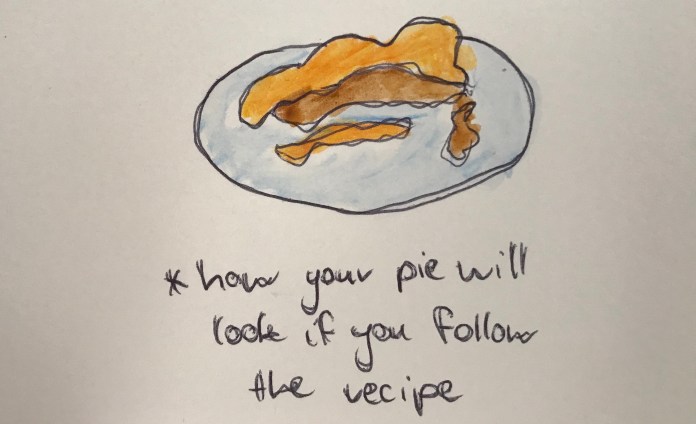 * how your pie will
look if you follow
the recipe